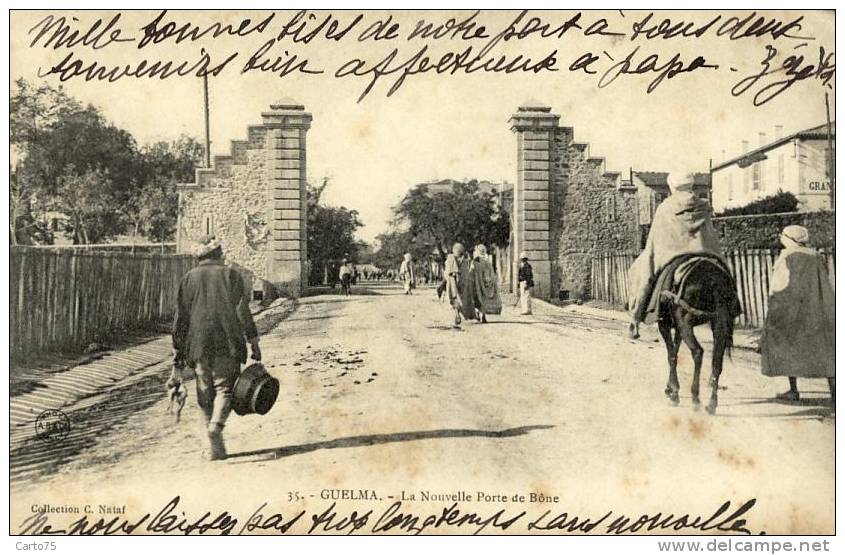 Mille bonnes bises de notre part à tous deux
souvenirs bien affectueux à papa.
GRAN
35. - GUELMA. - La Nouvelle Porte de Bône
Collection C. Nataf
ne nous laissez pas trop longtemps sans nouvelle.
Carto75
www.delcampe.net